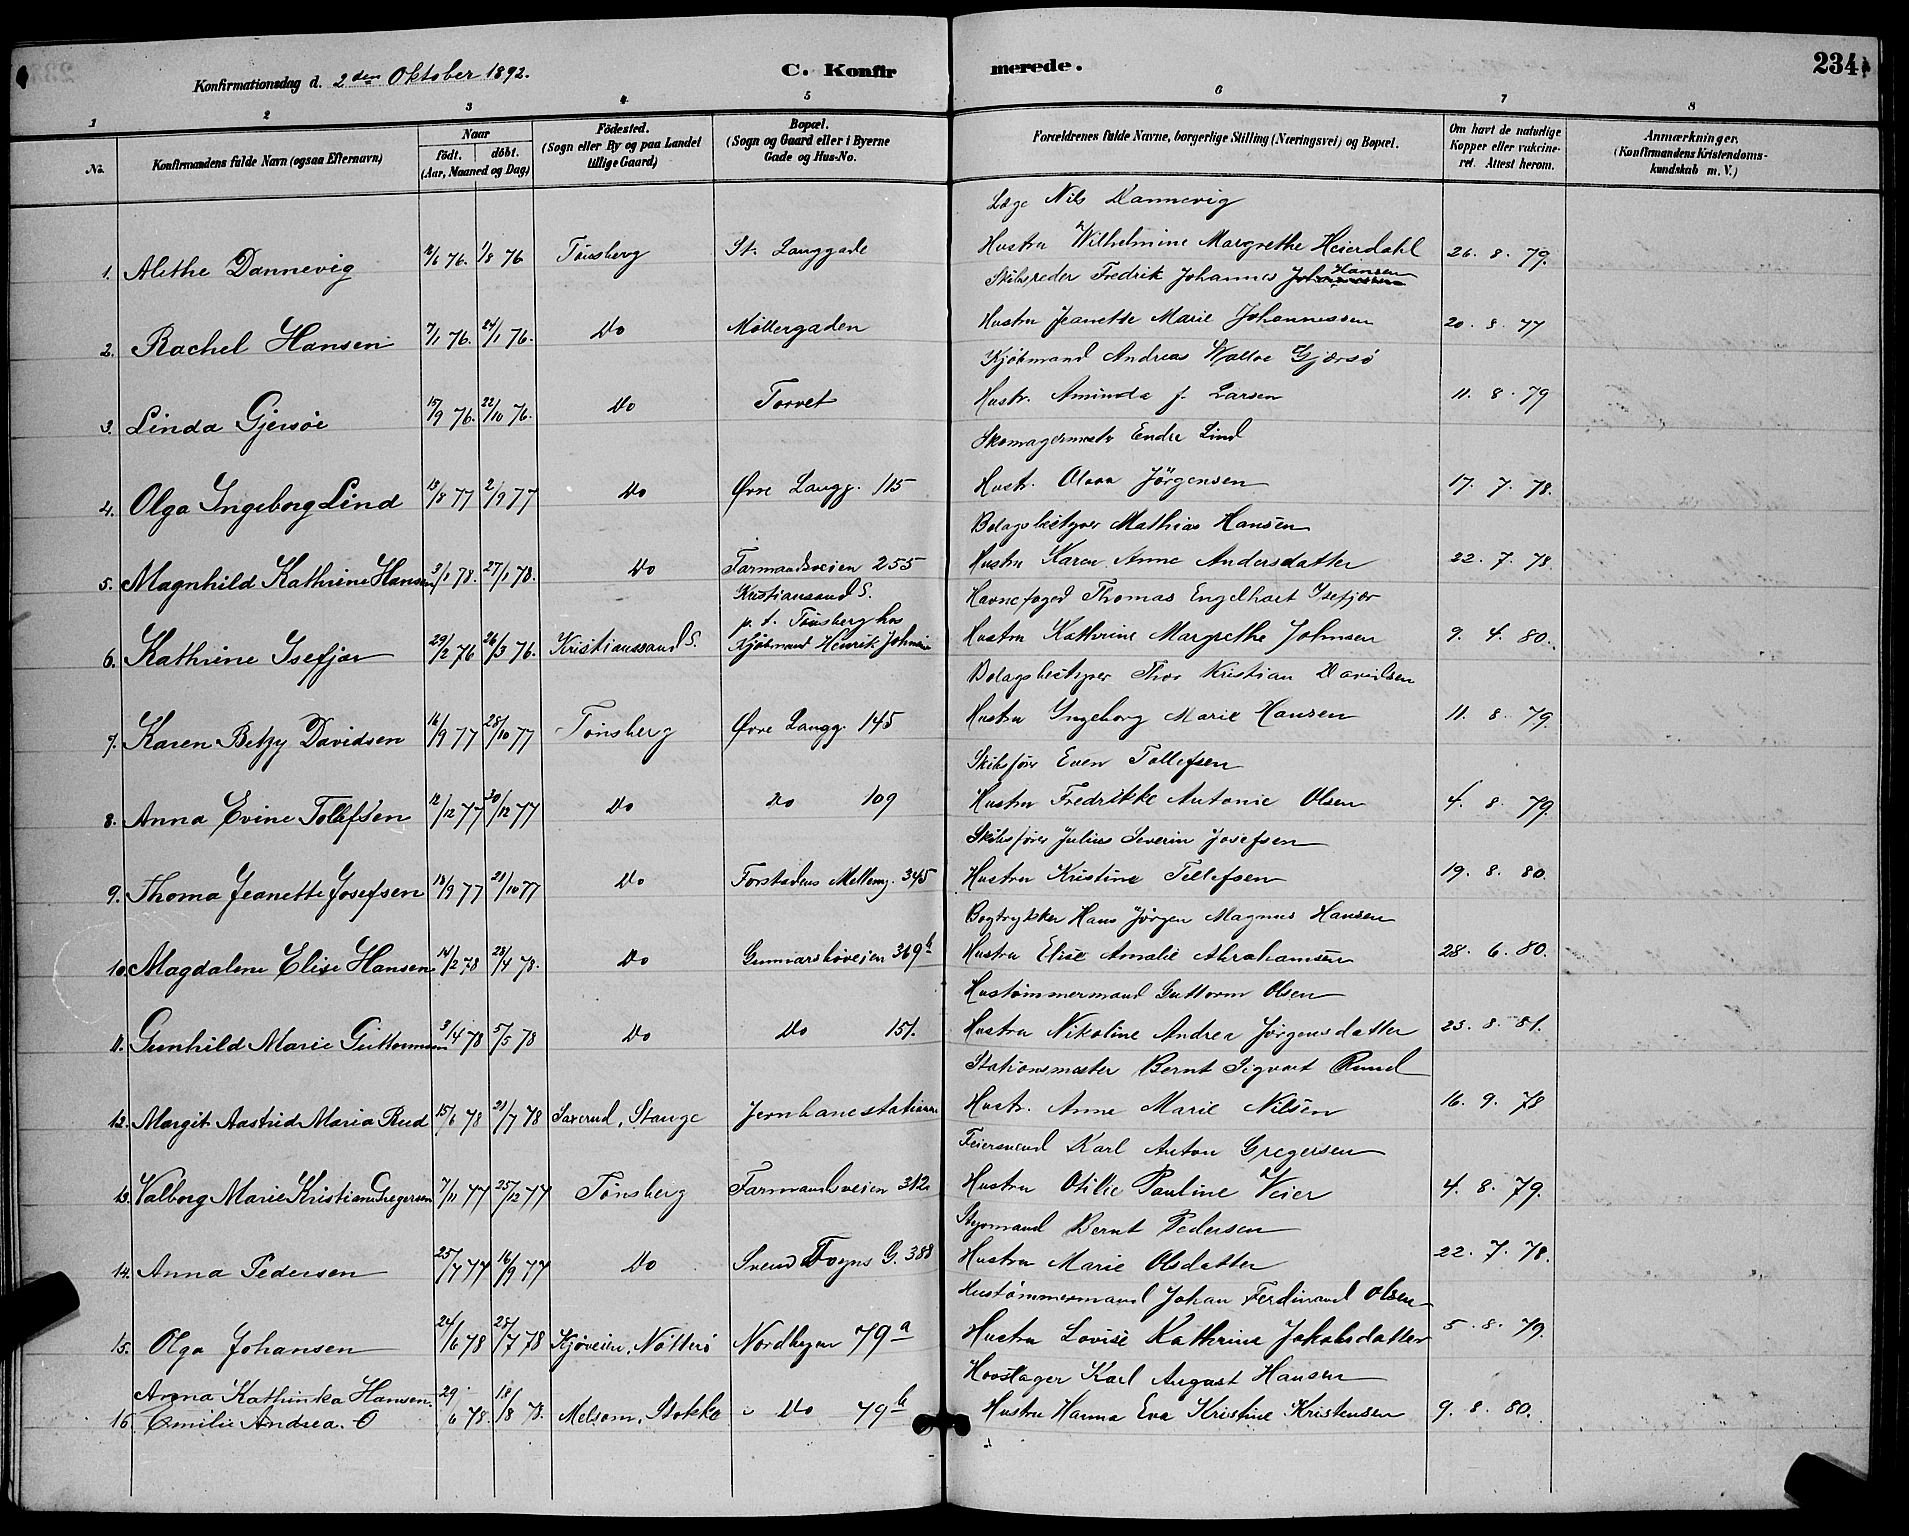 Konfirmationsdag d. 2den Oktober 1892.
C. Konfirmerede.
234
1 2 3 4 5 6 7 8
No.
Konfirmandens fulde Navn (ogsaa Efternavn)
Naar
födt. döbt.
(Aar, Maaned og Dag)
Födested.
(Sogn eller By og paa Landet
tillige Gaard)
Bopæl.
(Sogn og Gaard eller i Byerne
Gade og Hus-No.
Forældrenes fulde Navne, borgerlige Stilling (Næringsvei) og Bopæl.
Om havt de naturlige
Kopper eller vakcine-
ret. Attest herom.
Anmærkninger.
(Konfirmandens Kristendoms-
kundskab m. V.)
Læge Nils Dannevig
1. Alethe Dannevig 76. 1/8 76 Tönsberg St. Langgade Hustru Wilhelmine Margrethe Heierdahl 26. 8. 79.
Skibsreder Fredrik Johannes Hansen
2. Rachel Hansen 7/1 76. 24/1 76. Do Möllergaden Hustru Jeanette Marie Johannessen 20. 8. 77
Kjöbmand Andreas Walloe Gjersö
3. Linda Gjersöe 15/9 76. 22/10 76. Do Torvet Hustr. Aminda f. Larsen 11. 8. 79
Skomagermestr Endre Lind
4. Olga Ingeborg Lind 13/8 77 2/9 77 Do Øvre Langg. 115 Hustr. Olava Jörgensen 17. 7. 78.
Bolagsbestyrer Mathias Hansen
5. Magnhild Kathrine Hansen 3/1 78. 27/1 78. Do Farmandsveien 255 Hustru Karen Anne Andersdatter 22. 7. 78
Kristiansand S. Havnefoged Thomas Engelhart Isefjær
p. t. Tönsberg hos
6. Kathrine Isefjær 29/2 76 26/3 76. Kristianssand S. Kjöbmand Henrik Johnsen Hustru Kathrine Margrethe Johnsen 9. 4. 80.
Bolagsbestyrer Thor Kristian Davidsen
7. Karen Betzy Davidsen 16/9 77 28/10 77 Tönsberg Øvre Langg. 145 Hustru Ingeborg Marie Hansen 11. 8. 79.
Skibsförer Even Tollefsen
8. Anna Evine Tollefsen 12/12 77 30/12 77 Do Do 109 Hustru Fredrikke Antonie Olsen 4. 8. 79.
Skibsförer Julius Severin Josefsen
9. Thoma Jeanette Josefsen 18/9 77 21/10 77 Do Forstadens Mellemg. 345 Hustru Kristine Tellefsen 19. 8. 80.
Bogtrykker Hans Jörgen Magnus Hansen
10. Magdalene Elise Hansen 14/2 78 28/4 78. Do Gunnarsböveien 369b Hustru Elise Amalie Abrahamsen 28. 6. 80.
Hustömmermand Guttorm Olsen
11. Gunhild Marie Guttormsen 3/4 78 5/5 78 Do Do 151. Hustru Nikoline Andrea Jörgensdatter 23. 8. 81.
Stationsmester Bernt Sigvart Ruud
12. Margit Aastrid Maria Rud 15/6 78 21/7 78 Saxerud, Stange Jernbanestationen Hustr. Anne Marie Nilsen 16. 9. 78
Feiersvend Karl Anton Gregersen
13. Valborg Marie Kristiane Gregersen 7/11 77 25/12 77 Tönsberg Farmandsveien 312 Hustru Otilie Pauline Weier 4. 8. 79.
Styrmand Bernt Pedersen
14. Anna Pedersen 25/7 77 16/9 77 Do Svend Foyns G. 388 Hustru Marie Olsdatter 22. 7. 78.
Hustömmermand Johan Ferdinand Olsen
15. Olga Johansen 24/6 78 28/7 78 Kjöveien, Nötterö Nordbyen 79a Hustru Lovise Kathrine Jakobsdatter 5. 8. 79.
Anna Kathinka Hansen. Hovslager Karl August Hansen
16. Emilie Andrea. O 29/6 78. 18/8 78. Melsom, Stokke Do 79b Hustru Hanna Eva Kristine Kristensen 9. 8. 80.